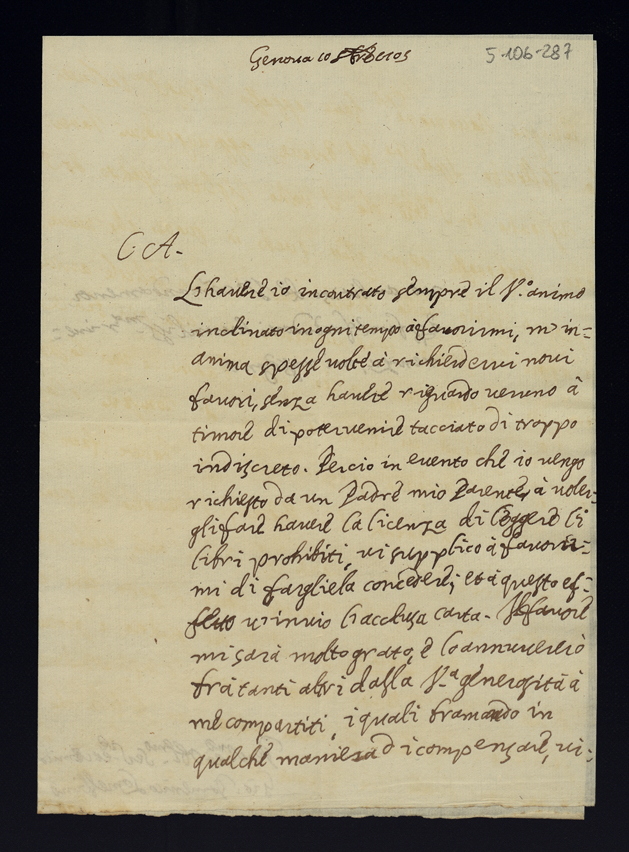 Genova 10 1705
5-106-287
C. A.
L'havere io incontrato sempre il V.o animo
inclinato in ogni tempo à favorirmi, m'in=
anima spesse volte à richiedervi novi
favori, senza havere riguardo veruno à
timore di poter venire tacciato di troppo
indiscreto. Percio in evento che io vengo
richiesto da un Padre mio Parente, à voler=
gli fare havere la licenza di leggere li
libri prohibiti, vi supplico à favorir=
mi di fargliela concedere; et à questo ef=
fetto v'invio l'acclusa carta. Il favore
mi sarà molto grato, e lo annuvererò
frà tanti altri dalla V.a generosità à
me compartiti, i quali bramando in
qualche maniera di compensare, vi=